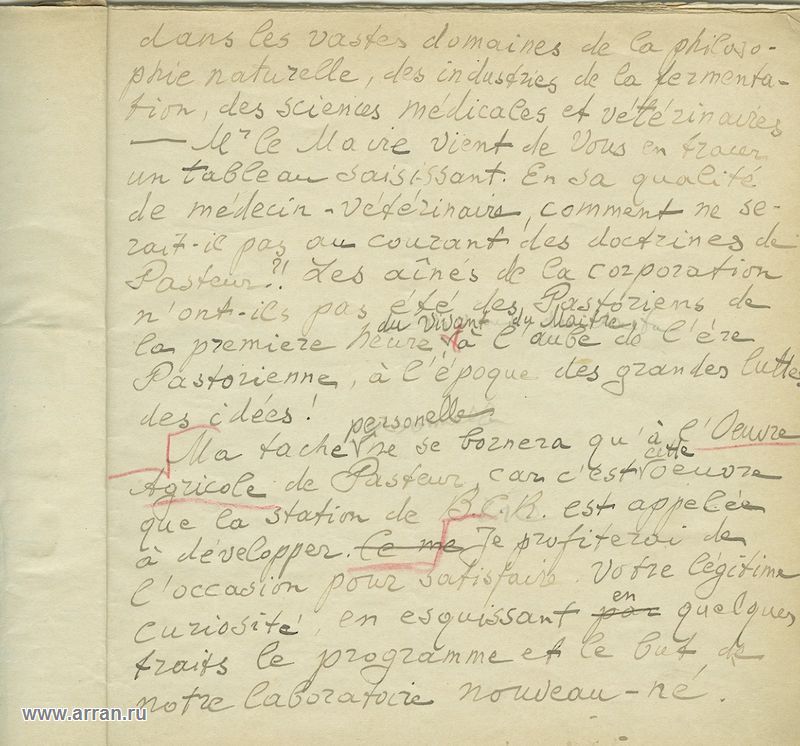 dans les vastes domaines de la philoso-
phie naturelle, des industries de la fermenta-
tion, des sciences médicales et vétérinaires
— Mr le Maire vient de Vous en tracer
un tableau saisissant. En sa qualité
de médecin-vétérinaire, comment ne se-
rait-il pas au courant des doctrines de
Pasteur?! Les aînés de la corporation
n'ont-ils pas été des Pastoriens de
du vivant du Maître,
la première heure, à l'aube de l'ère
Pastorienne, à l'époque des grandes luttes
des idées!
personelle
Ma tache ne se bornera qu'à l'Oeuvre
cette
Agricole de Pasteur, car c'est oeuvre
que la station de B.C.R. est appelée
à développer. Ce me Je profiterai de
l'occasion pour satisfaire Votre légitime
curiosité, en esquissant par quelques
en
traits le programme et le but de
notre laboratoire nouveau-né.
www.arran.ru